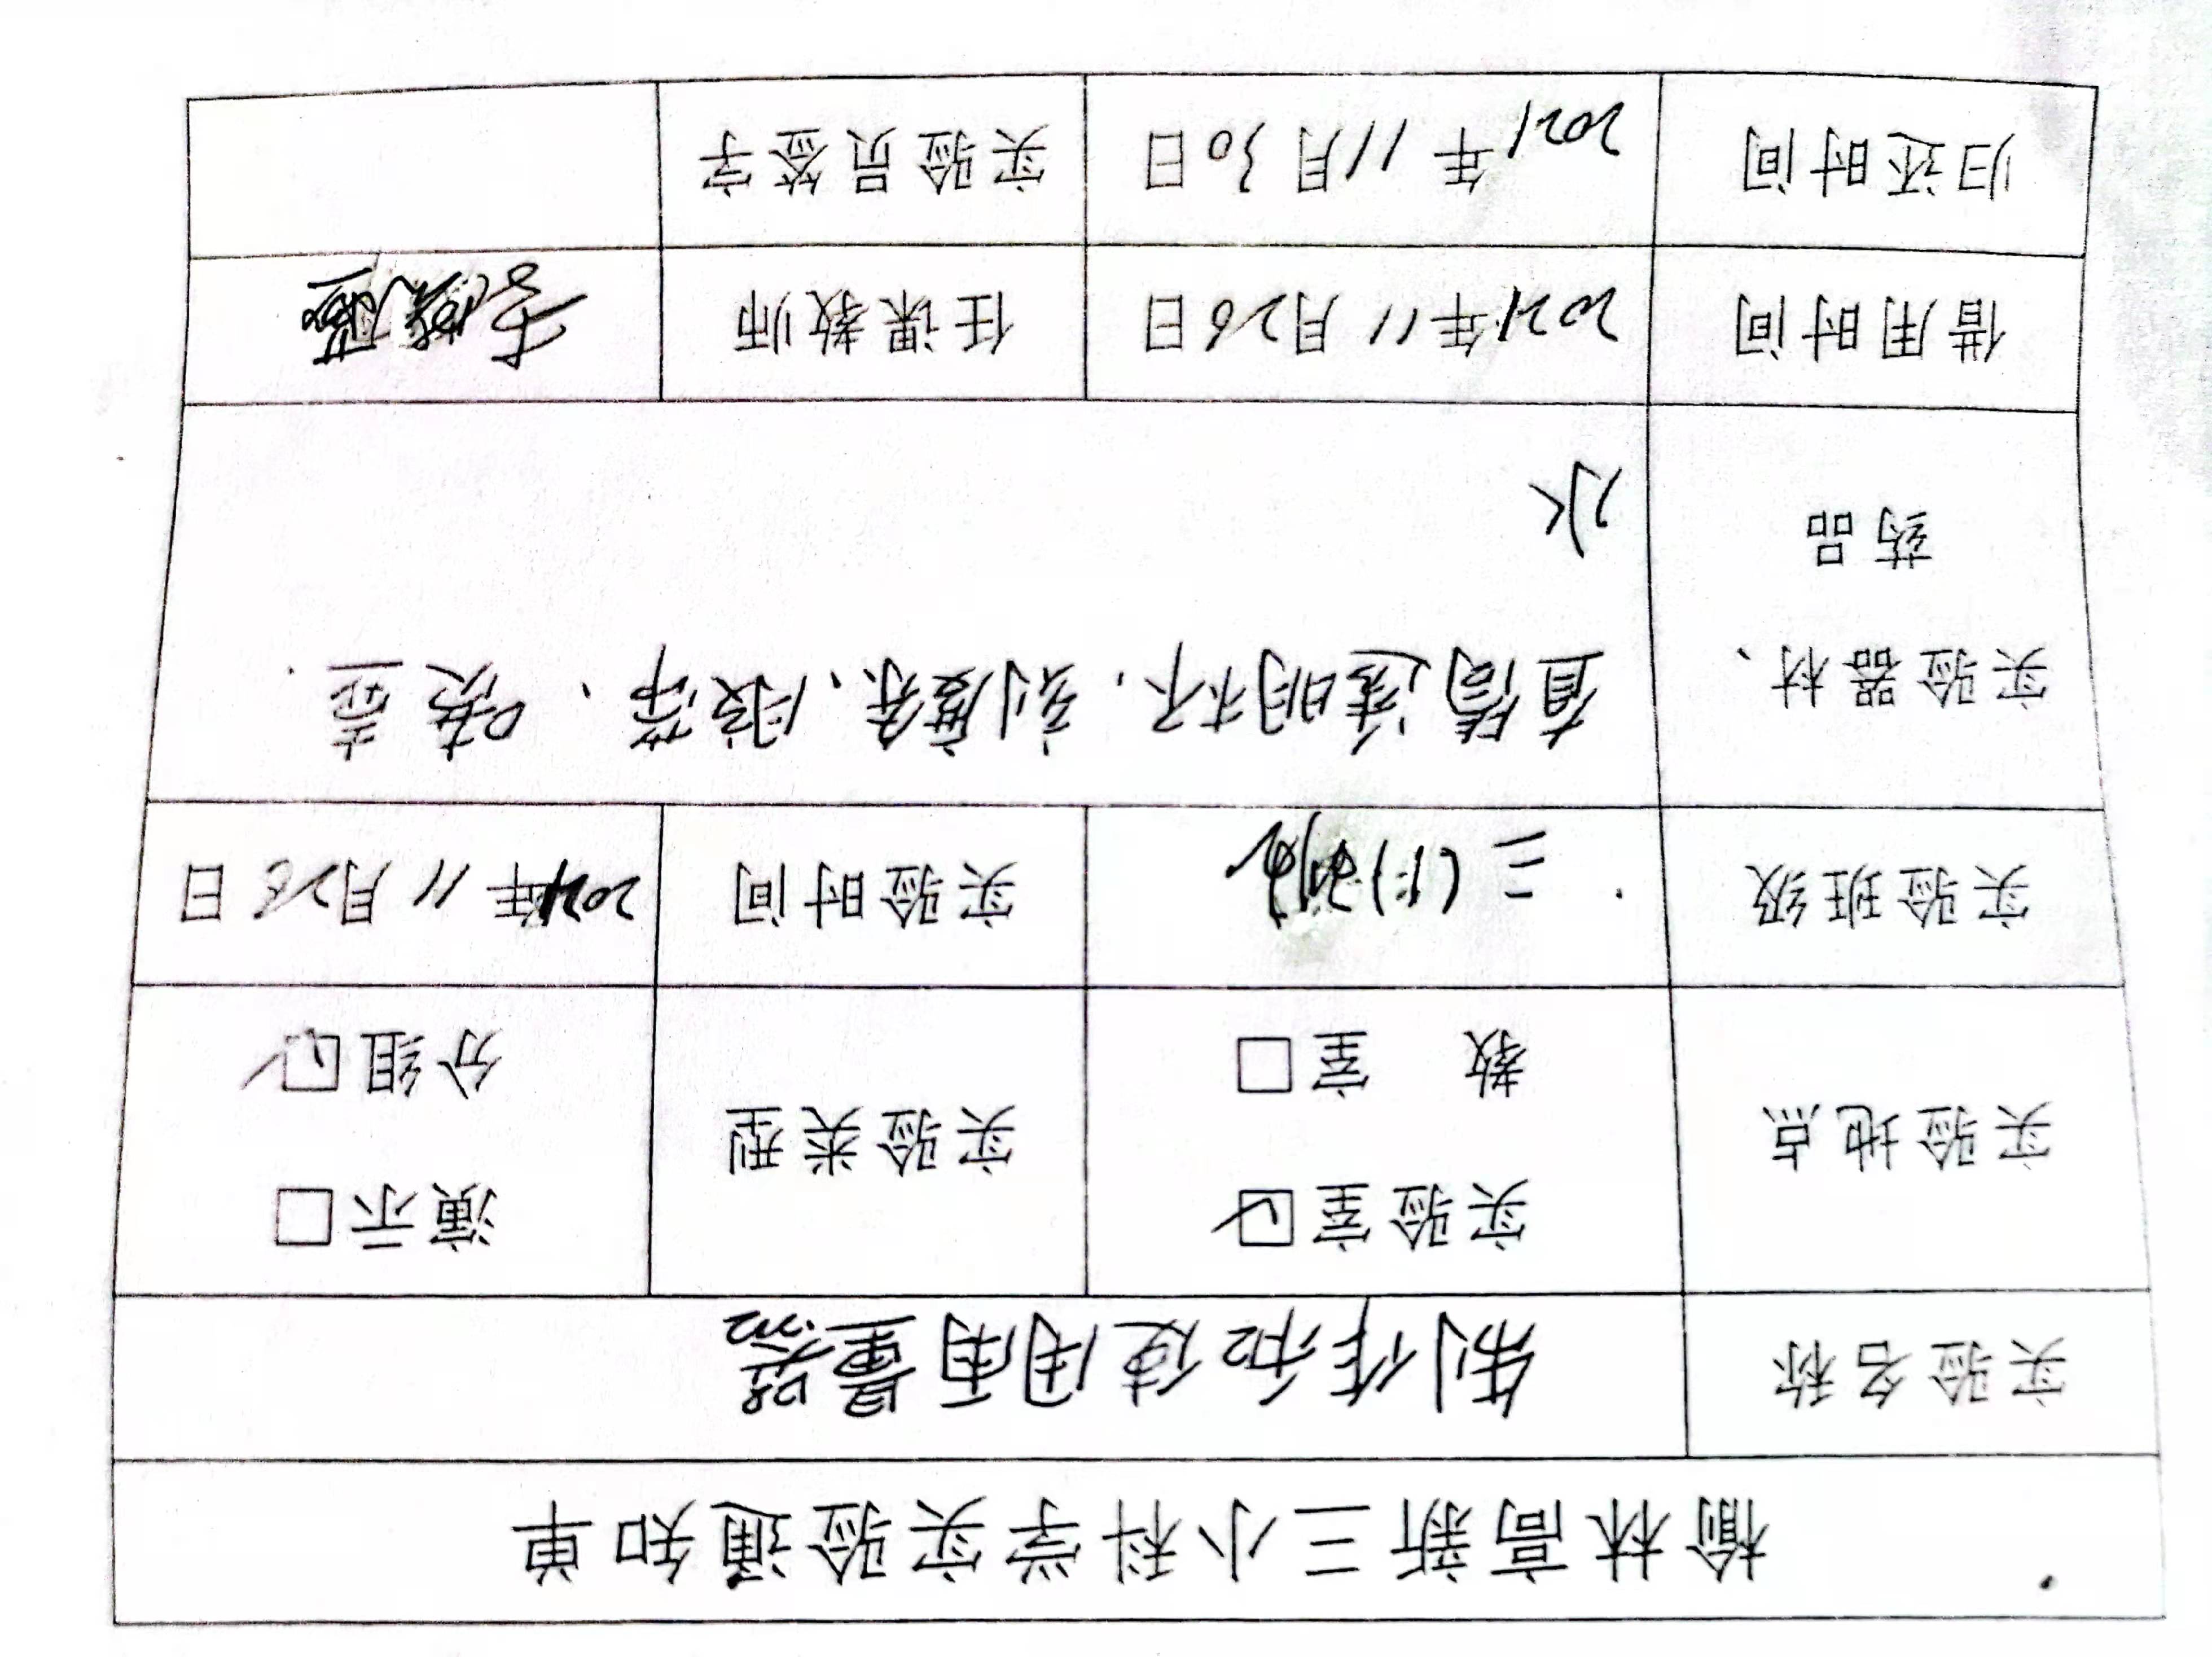 榆林高新三小科学实验通知单
实验名称 制作和使用雨量器
实验地点 实验室☑ 教 室□ 实验类型 演示□ 分组☑
实验班级 三 实验时间 2021年11月26日
实验器材、药品 直筒透明杯、刻度条、胶带、喷壶.
水
借用时间 2021年11月26日 任课教师 李
归还时间 2021年11月30日 实验员签字